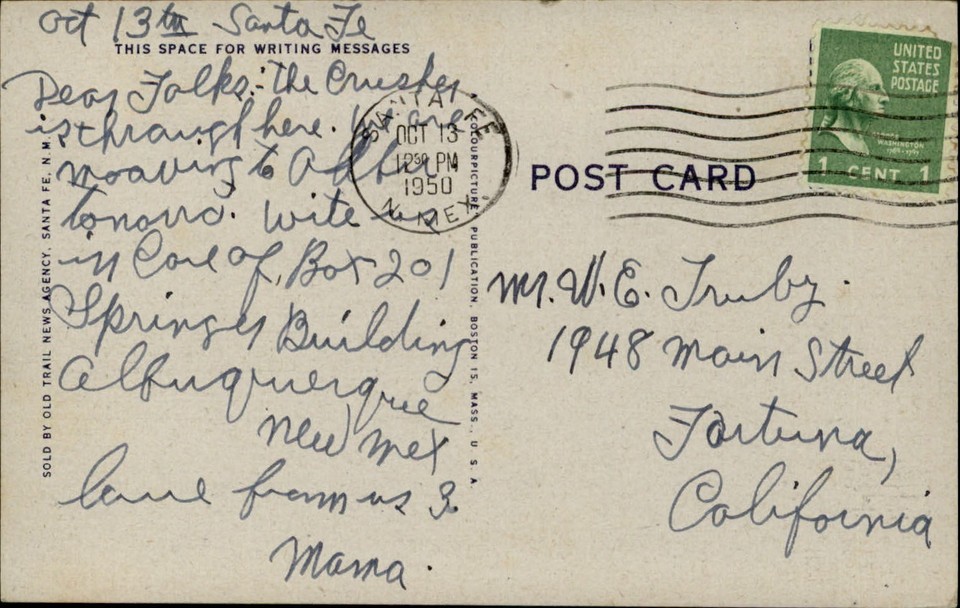 Oct 13th Santa Fe
THIS SPACE FOR WRITING MESSAGES
Dear Folks:- the Crusher
is through here. We are
moaving to Albu
tomorro. Write us
in Care of, Box 201
Springer Building
Albuquerque
New Mex
love from us 3.
Mama.
SOLD BY OLD TRAIL NEWS AGENCY, SANTA FE, N.M.
COLOURPICTURE PUBLICATION, BOSTON 15, MASS., U. S. A.
SANTA FE
OCT 13
12 30 PM
1950
N. MEX.
POST CARD
UNITED
STATES
POSTAGE
WASHINGTON
1 CENT 1
Mr. W. E. Truby.
1948 Main Street
Fortuna,
California